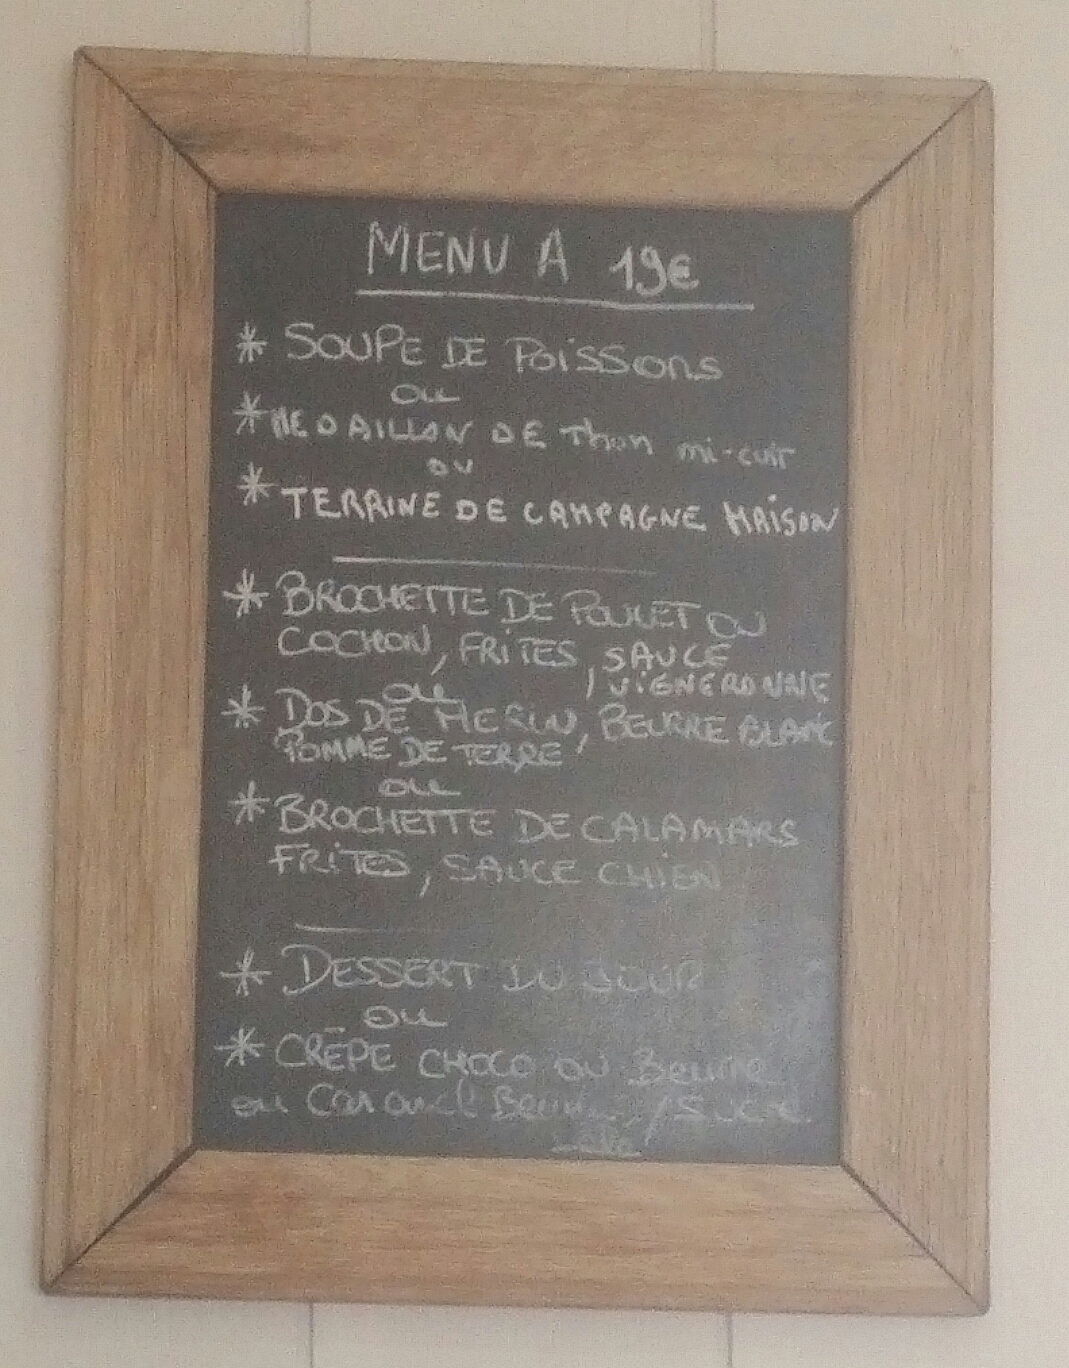 MENU A 19€
* SOUPE DE POISSONS
OU
* MEDAILLON DE Thon mi-cuit
OU
* TERRINE DE CAMPAGNE MAISON
* BROCHETTE DE POULET OU
COCHON, FRITES, SAUCE
VIGNERONNE
OU
* DOS DE MERLU, BEURRE BLANC
POMME DE TERRE
OU
* BROCHETTE DE CALAMARS
FRITES, SAUCE CHIEN
* DESSERT DU JOUR
OU
* CRÊPE CHOCO OU Beurre
ou Caramel Beurre /Sucre